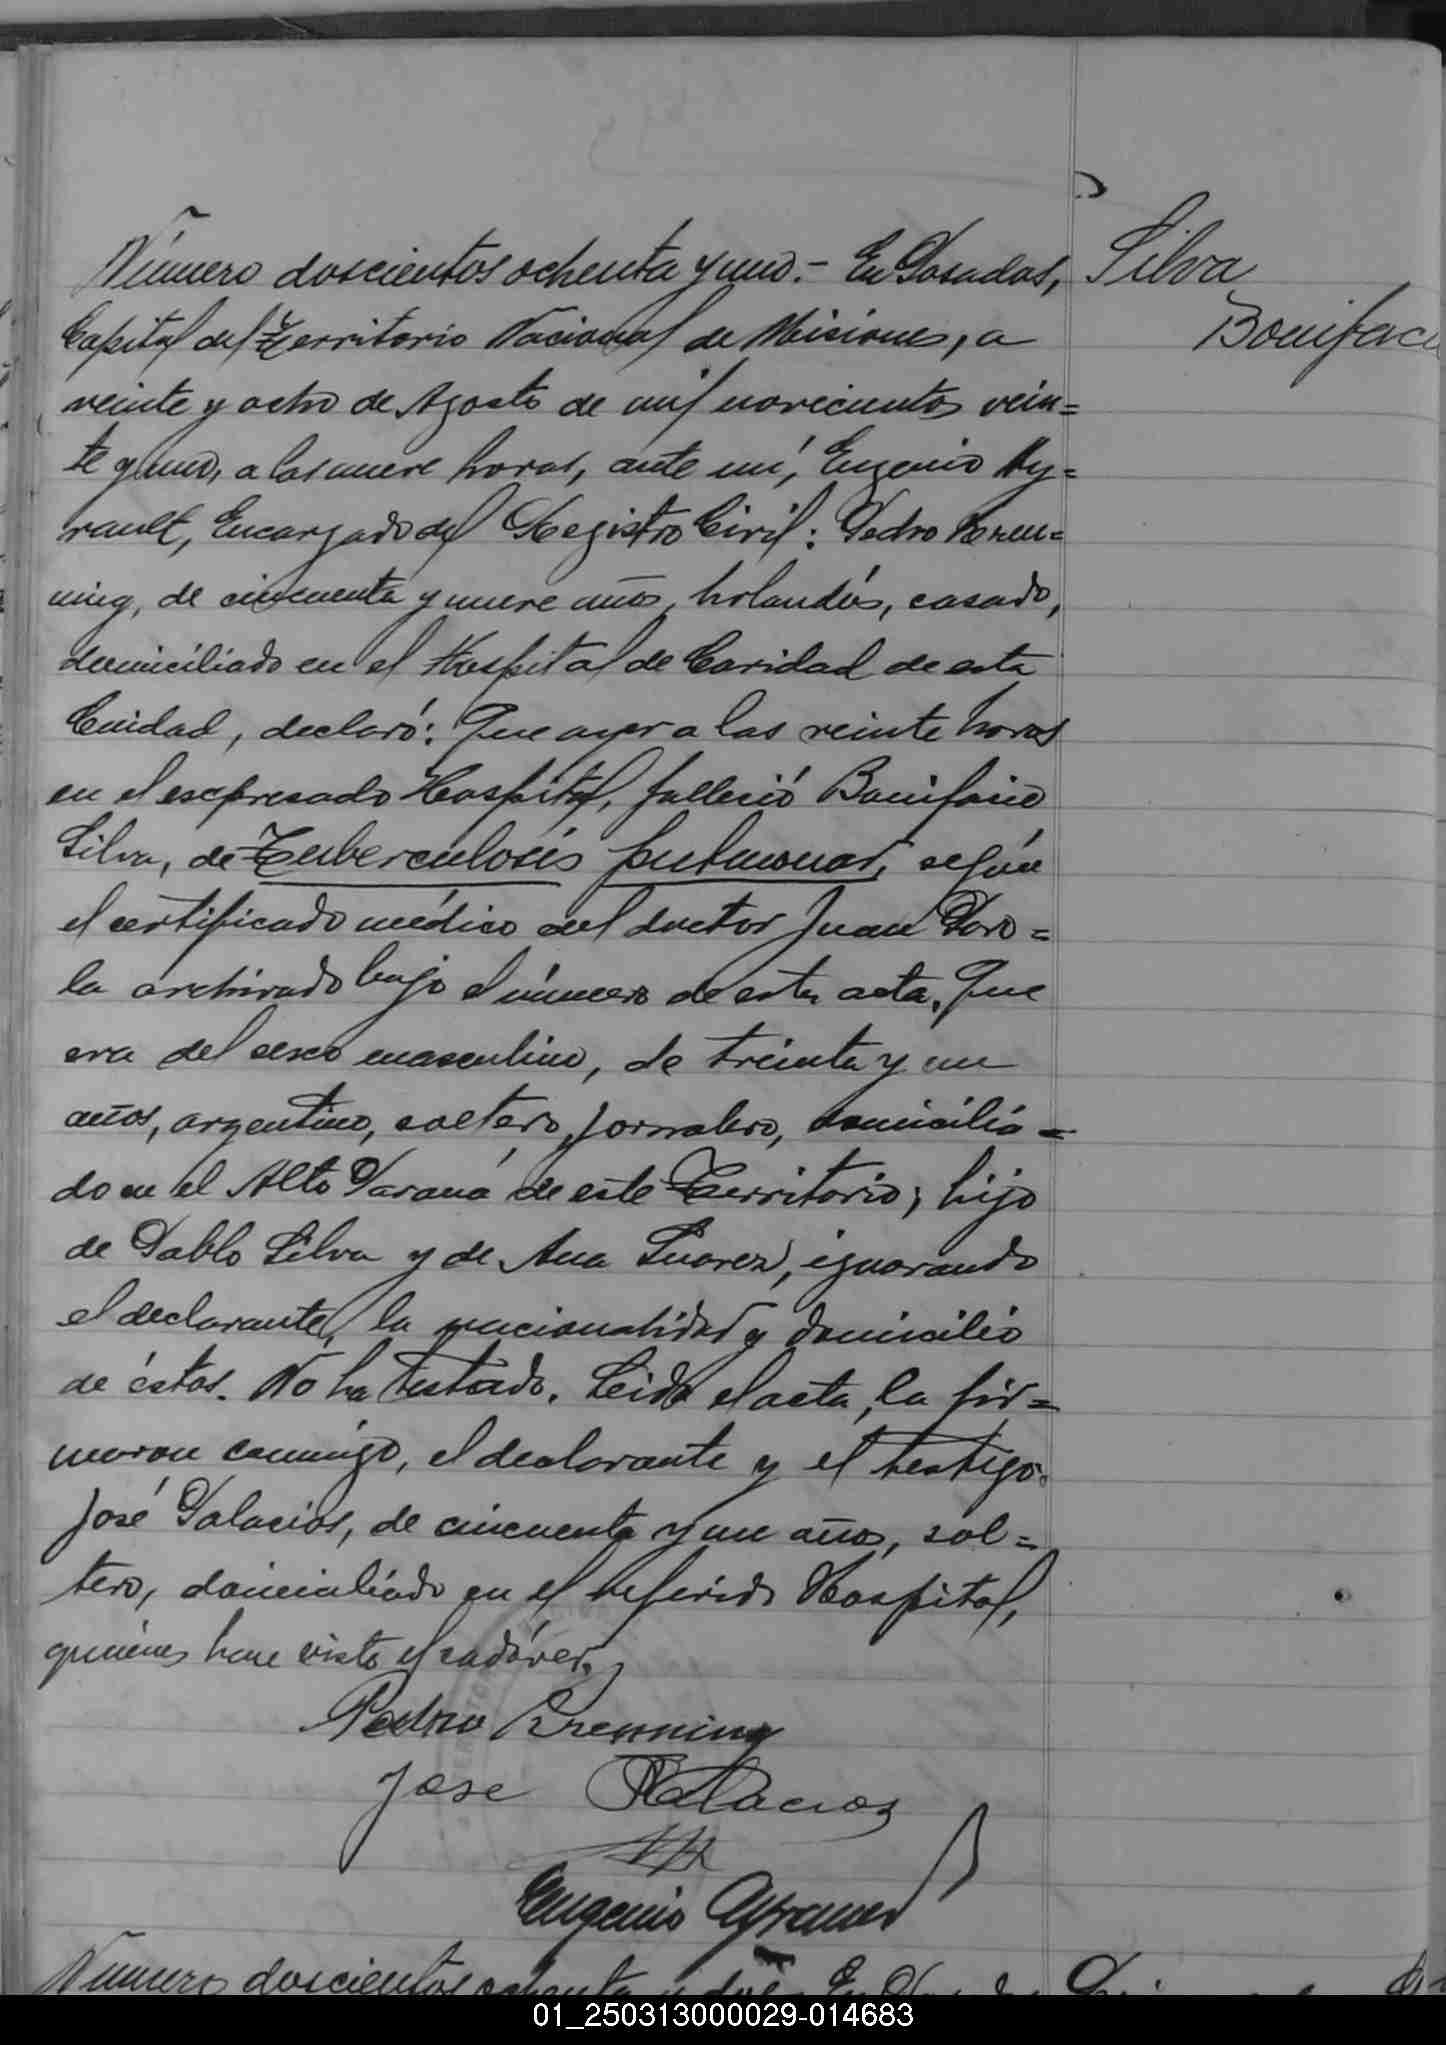 Número doscientos ochenta y uno.- En Posadas,
Capital del Territorio Nacional de Misiones, a
veinte y ocho de Agosto de mil novecientos vein=
te y uno, a las nueve horas, ante mí, Eugenio Ay=
rault, Encargado del Registro Civil: Pedro Bren=
ning, de cincuenta y nueve años, holandés, casado,
domiciliado en el Hospital de Caridad de esta
Ciudad, declaró: Que ayer a las veinte horas
en el expresado Hospital, falleció Bonifacio
Silva, de Tuberculosis pulmonar, según
el certificado médico del doctor Juan Paro=
la archivado bajo el número de esta acta. Que
era del sexo masculino, de treinta y un
años, argentino, soltero, jornalero, domicilia=
do en el Alto Paraná de este Territorio; hijo
de Pablo Silva y de Ana Suarez, ignorando
el declarante, la nacionalidad y domicilio
de éstos. No ha testado. Leida el acta, la fir=
maron conmigo, el declarante y el testigo
José Palacios, de cincuenta y un años, sol=
tero, domiciliado en el referido Hospital,
quiénes han visto el cadáver.
Pedro Brenning
Jose Palacios
Eugenio Ayrault
Silva
Bonifaci
Número doscientos ochenta y dos.- En
01_250313000029-014683